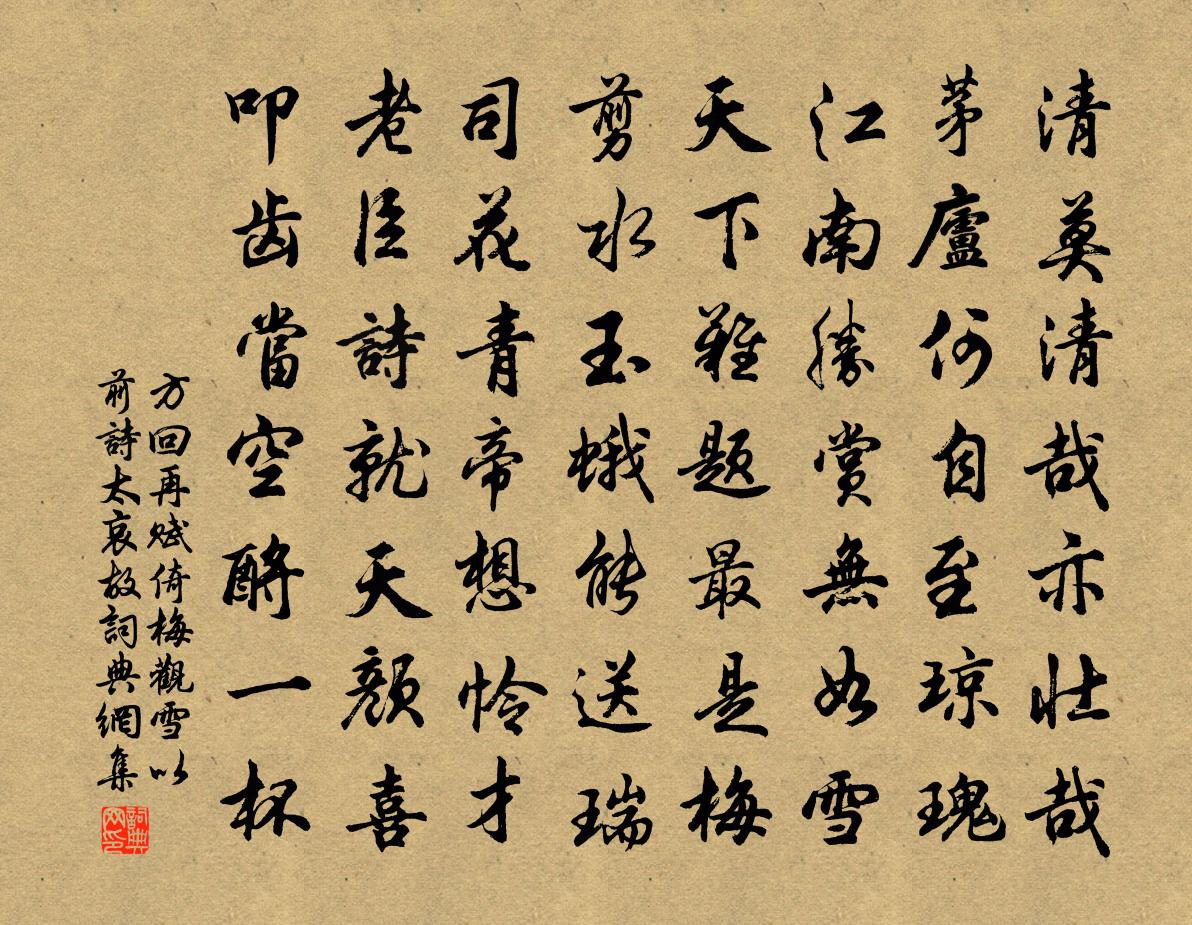 清莫清哉亦壮哉
茅廬何自至琼瑰
江南勝賞無如雪
天下難题最是梅
剪水玉蛾能送瑞
司花青帝想怜才
老臣詩就天颜喜
叩齿當空酹一杯
方回再赋倚梅觀雪以
前詩太哀故詞典網集
詞典
网印